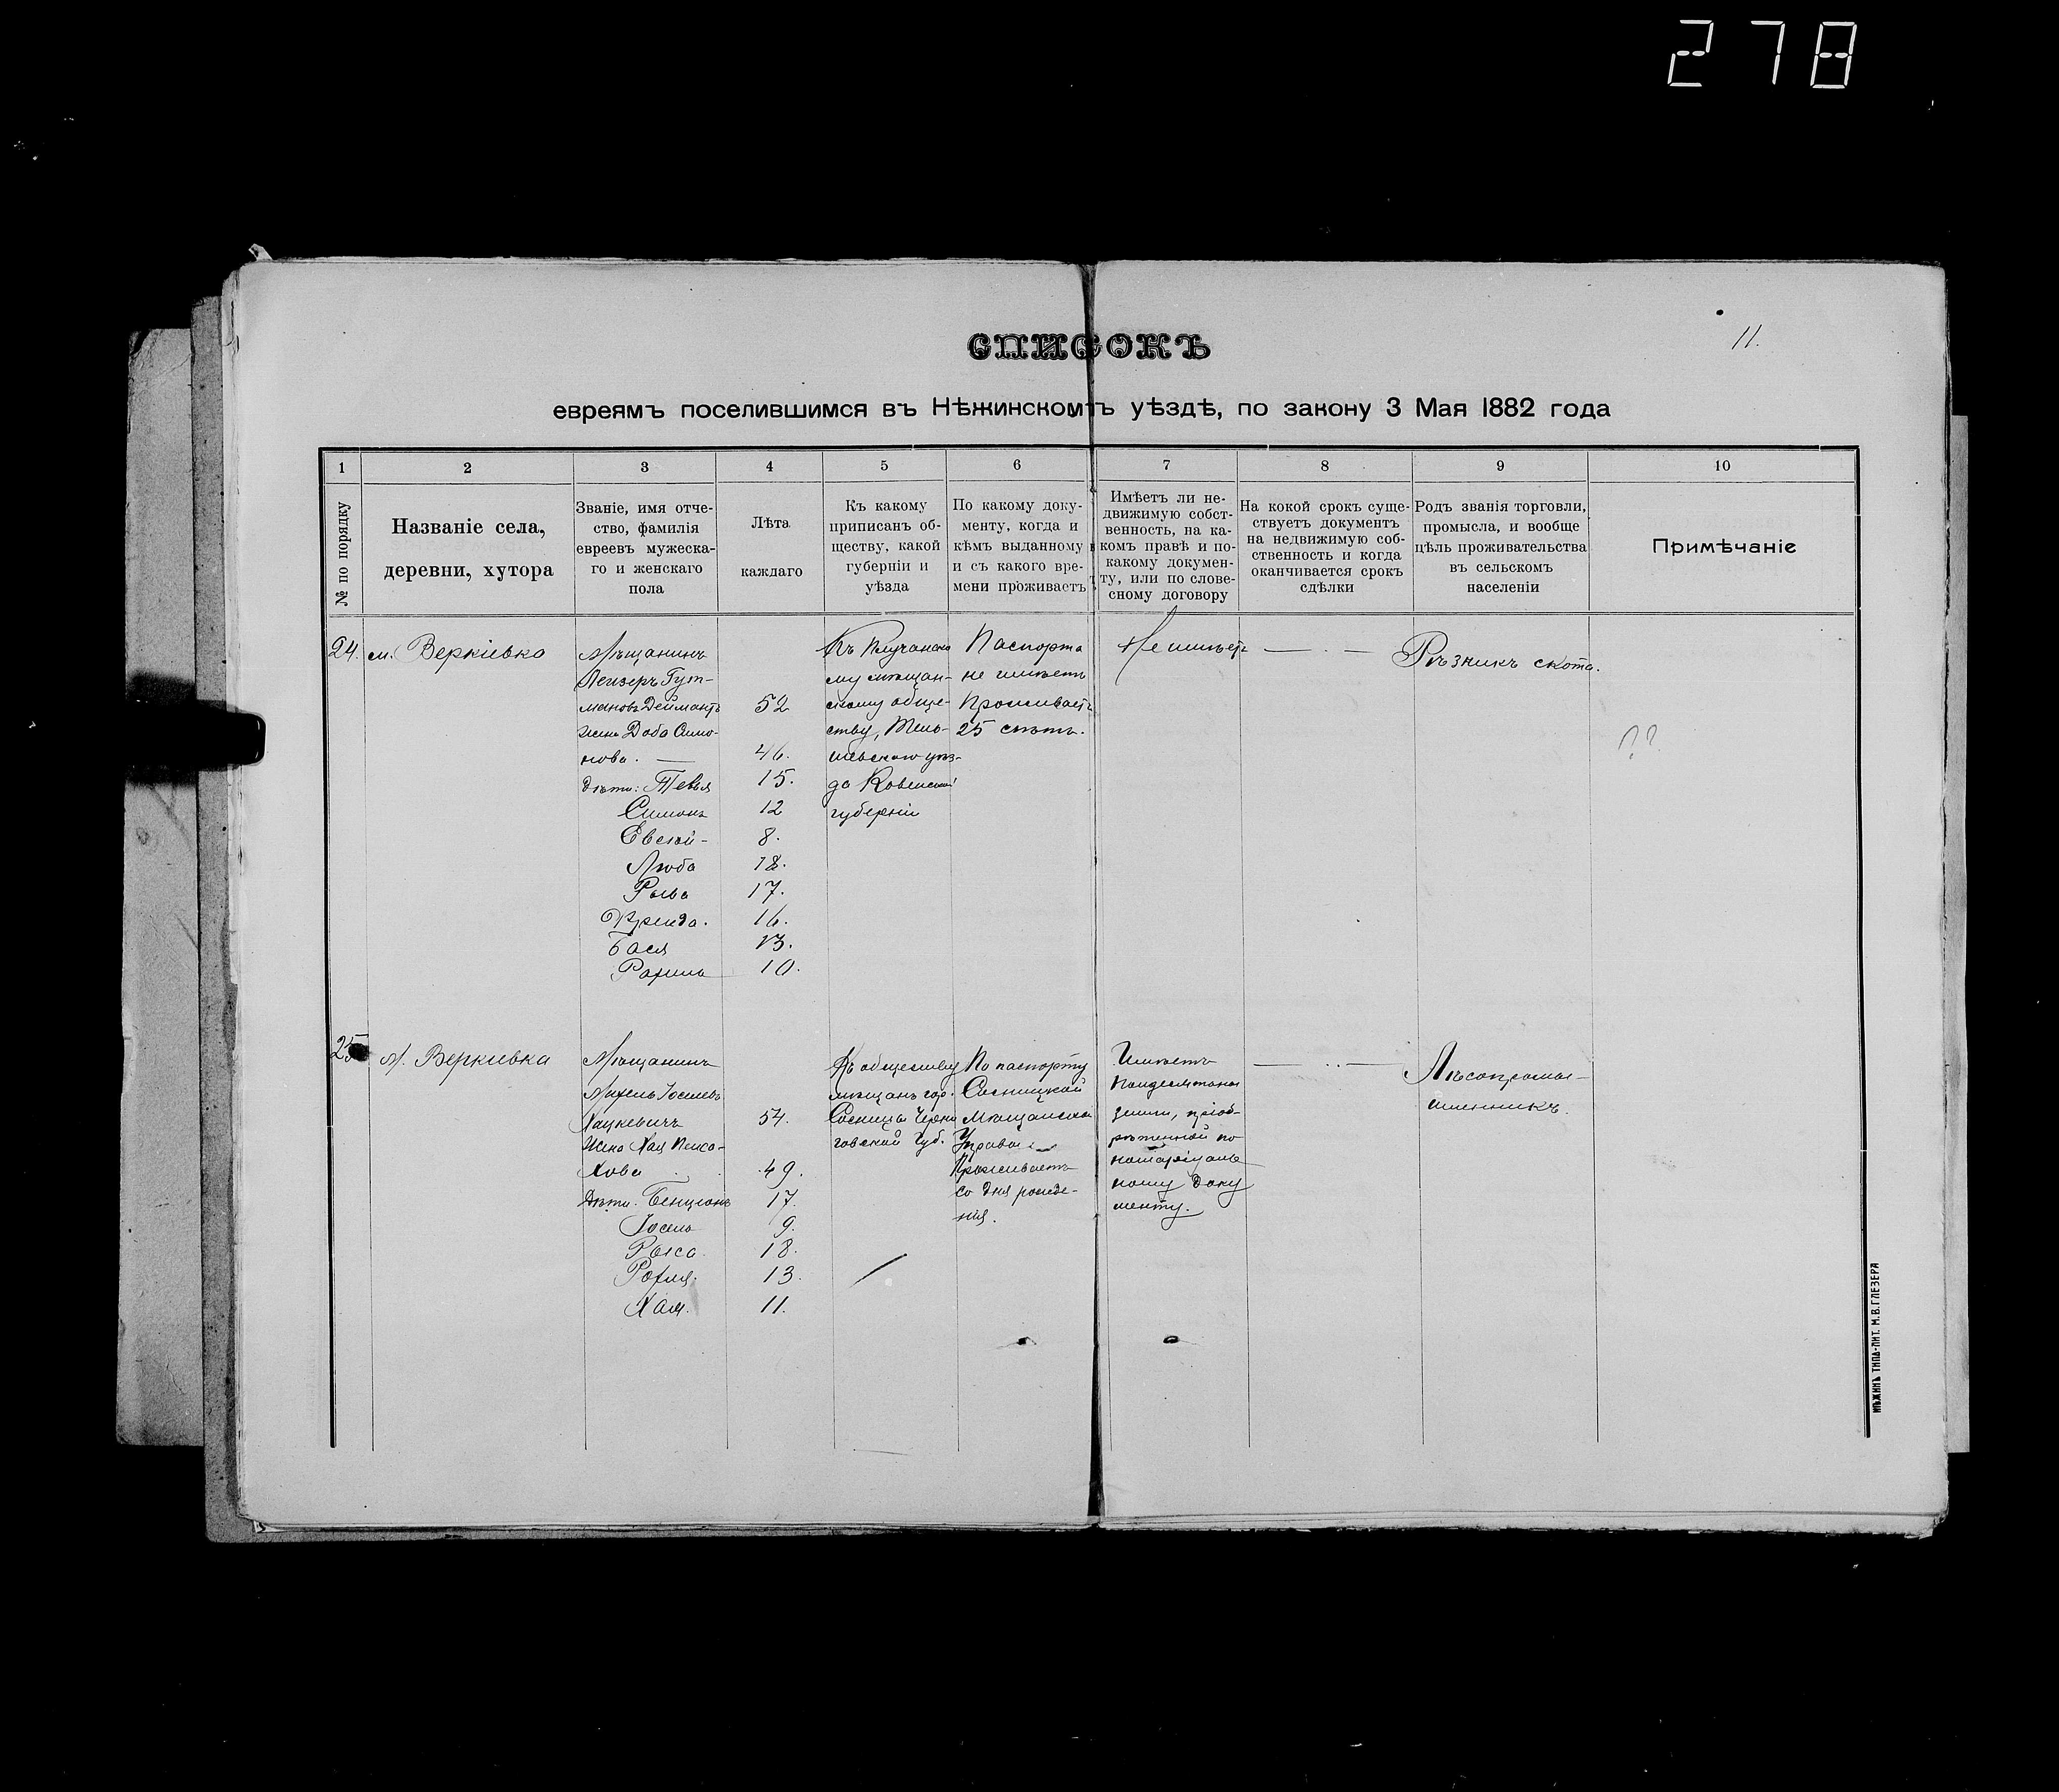 278
11.
СПИСОКЪ
евреямъ поселившимся въ Нѣжинскомъ уѣздѣ, по закону 3 Мая 1882 года
1
2
3
4
5
6
7
8
9
10
№ по порядку
Названіе села,
деревни, хутора
Званіе, имя отче-
ство, фамилія
евреевъ мужеска-
го и женскаго
пола
Лѣта
каждаго
Къ какому
приписанъ об-
ществу, какой
губерніи и
уѣзда
По какому доку-
менту, когда и
кѣмъ выданному
и съ какого вре-
мени проживаетъ
Имѣетъ ли не-
движимую собст-
венность, на ка-
комъ правѣ и по-
какому докумен-
ту, или по слове-
сному договору
На кокой срокъ суще-
ствуетъ документъ
на недвижимую соб-
ственность и когда
оканчивается срокъ
сдѣлки
Родъ званія торговли,
промысла, и вообще
цѣль проживательства
въ сельскомъ
населеніи
Примѣчаніе
24.
м. Веркіевка
Мѣщанинъ
Лейзеръ Гут-
мановъ Деймантъ
жена Доба Симо-
нова. —
дѣти: Тевья
Симонъ
Евсѣй -
Люба
Рыва
Фрейда.
Бася
Рахиль
52
46.
15.
12
8.
18.
17.
16.
13.
10.
му мѣщан-
скому обще-
ству, Тель-
шевскаго уѣз-
да Ковенской
губерніи
Паспорта
не имѣетъ
Проживаетъ
25 лѣтъ.
Не имѣетъ
— . —
Рѣзникъ скота.
??
25
М. Веркіевка
Мѣщанинъ
Хацкевичъ
Жена Хая Пейса-
хова
Дѣти. Бенціонъ
Іосель
Рыся.
Рохля.
Хая.
54.
49.
17.
9.
18.
13.
11.
Къ обществу
мѣщанъ гор.
Сосницы Черни
говской Губ.
По паспорту
Сосницкой
Мѣщанской
Управы
Проживаетъ
со дня рожде-
нія.
Имѣетъ
земли, пріоб-
рѣтенной по
нотаріуаль
ному доку
менту.
— .. —
Лѣсопромы-
шленникъ.
НѢЖИНЪ ТИПО-ЛИТ. М.В.ГЛЕЗЕРА